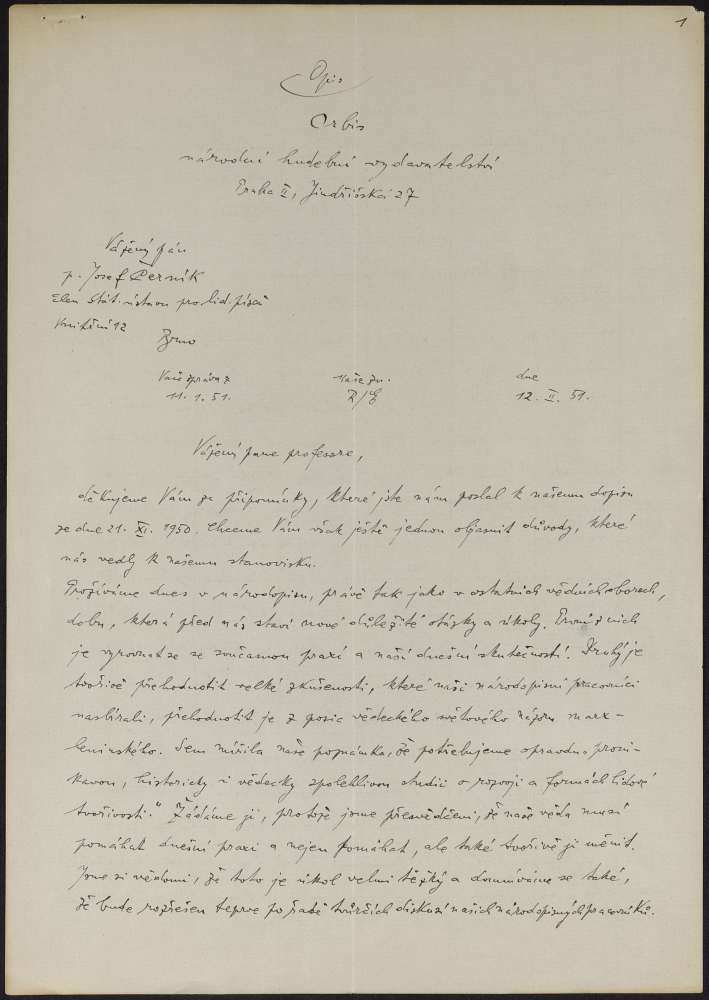 1
Opis
Orbis
národní hudební vydavatelství
Praha II, Jindřišská 27
Vážený pán
p. Josef Černík
člen Stát. ústavu pro lid. píseň
12
Brno
Vaše zpráva z
11. 1. 51.
naše zn.
R/
dne
12. II. 51.
Vážený pane profesore,
děkujeme Vám za připomínky, které jste nám poslal k našemu dopisu
ze dne 21. XI. 1950. Chceme Vám však ještě jednou objasnit důvody, které
nás vedly k našemu stanovisku.
Prožíváme dnes v národopisu, právě tak jako v ostatních vědních oborech,
dobu, která před nás staví nové důležité otázky a úkoly. První z nich
je vyrovnat se se současnou praxí a naší dnešní skutečností. Druhý je
tvořivě přehodnotit velké zkušenosti, které naši národopisní pracovníci
nasbírali, přehodnotit je z posic vědeckého světového názoru marx-
leninského. Sem mířila naše poznámka, že potřebujeme opravdu „proni-
kavou, historicky i vědecky spolehlivou studii o rozvoji a formách lidové
tvořivosti.“ Žádáme ji, protože jsme přesvědčeni, že naše věda musí
pomáhat dnešní praxi a nejen pomáhat, ale také tvořivě ji měnit.
Jsme si vědomi, že toto je úkol velmi těžký a domníváme se také,
že bude rozřešen teprve po řadě tvůrčích diskusí našich národopisných pracovníků.